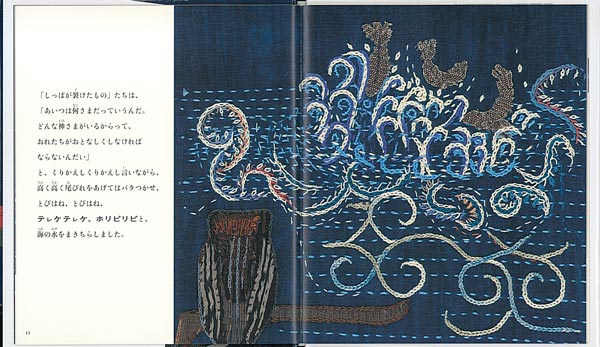 「しっぽが裂けたもの」たちは、
「あいつは何さまだっていうんだ。
どんな神さまがいるからって、
おれたちがおとなしくしなければ
ならないんだい」
と、くりかえしくりかえし言いながら、
高く高く尾びれをあげてはバタつかせ、
とびはね、とびはね、
テレケテレケ、ホリピリピと、
海の水をまきちらしました。